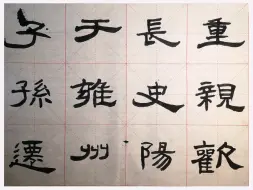 重親歡
長史陽
于雍州
子孫遷